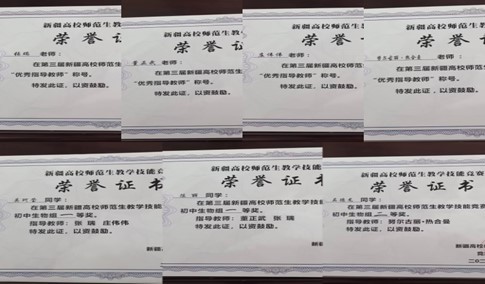 新疆高校师范生教学
荣誉证
张瑞 老师：
在第三届新疆高校师范生
“优秀指导教师”称号。
特发此证，以资鼓励。
新疆高校师范生教学
荣誉证
董正武 老师：
在第三届新疆高校师范生
“优秀指导教师”称号。
特发此证，以资鼓励。
新疆高校师范生教学
荣誉
老师：
在第三届新疆高校师范生
“优秀指导教师”称号。
特发此证，以资鼓励。
新疆高校师范生教
荣誉
老师：
在第三届新疆高校师范生
“优秀指导教师”称号。
特发此证，以资鼓励。
新疆高校师范生教学技能
荣誉证书
同学：
在第三届新疆高校师范生教学技能
初中生物组 一 等奖。
指导教师：张 瑞 庄伟伟
特发此证，以资鼓励。
新疆
新疆高校师范生教学技能竞
荣誉证书
张 同学：
在第三届新疆高校师范生教学技能
初中生物组 一 等奖。
指导教师：董正武 张 瑞
特发此证，以资鼓励。
新疆高校师范生教学技能竞赛
荣誉证书
同学：
在第三届新疆高校师范生教学技能竞
初中生物组 二 等奖。
指导教师：努尔古丽·热合曼
特发此证，以资鼓励。
新疆高校
二〇二